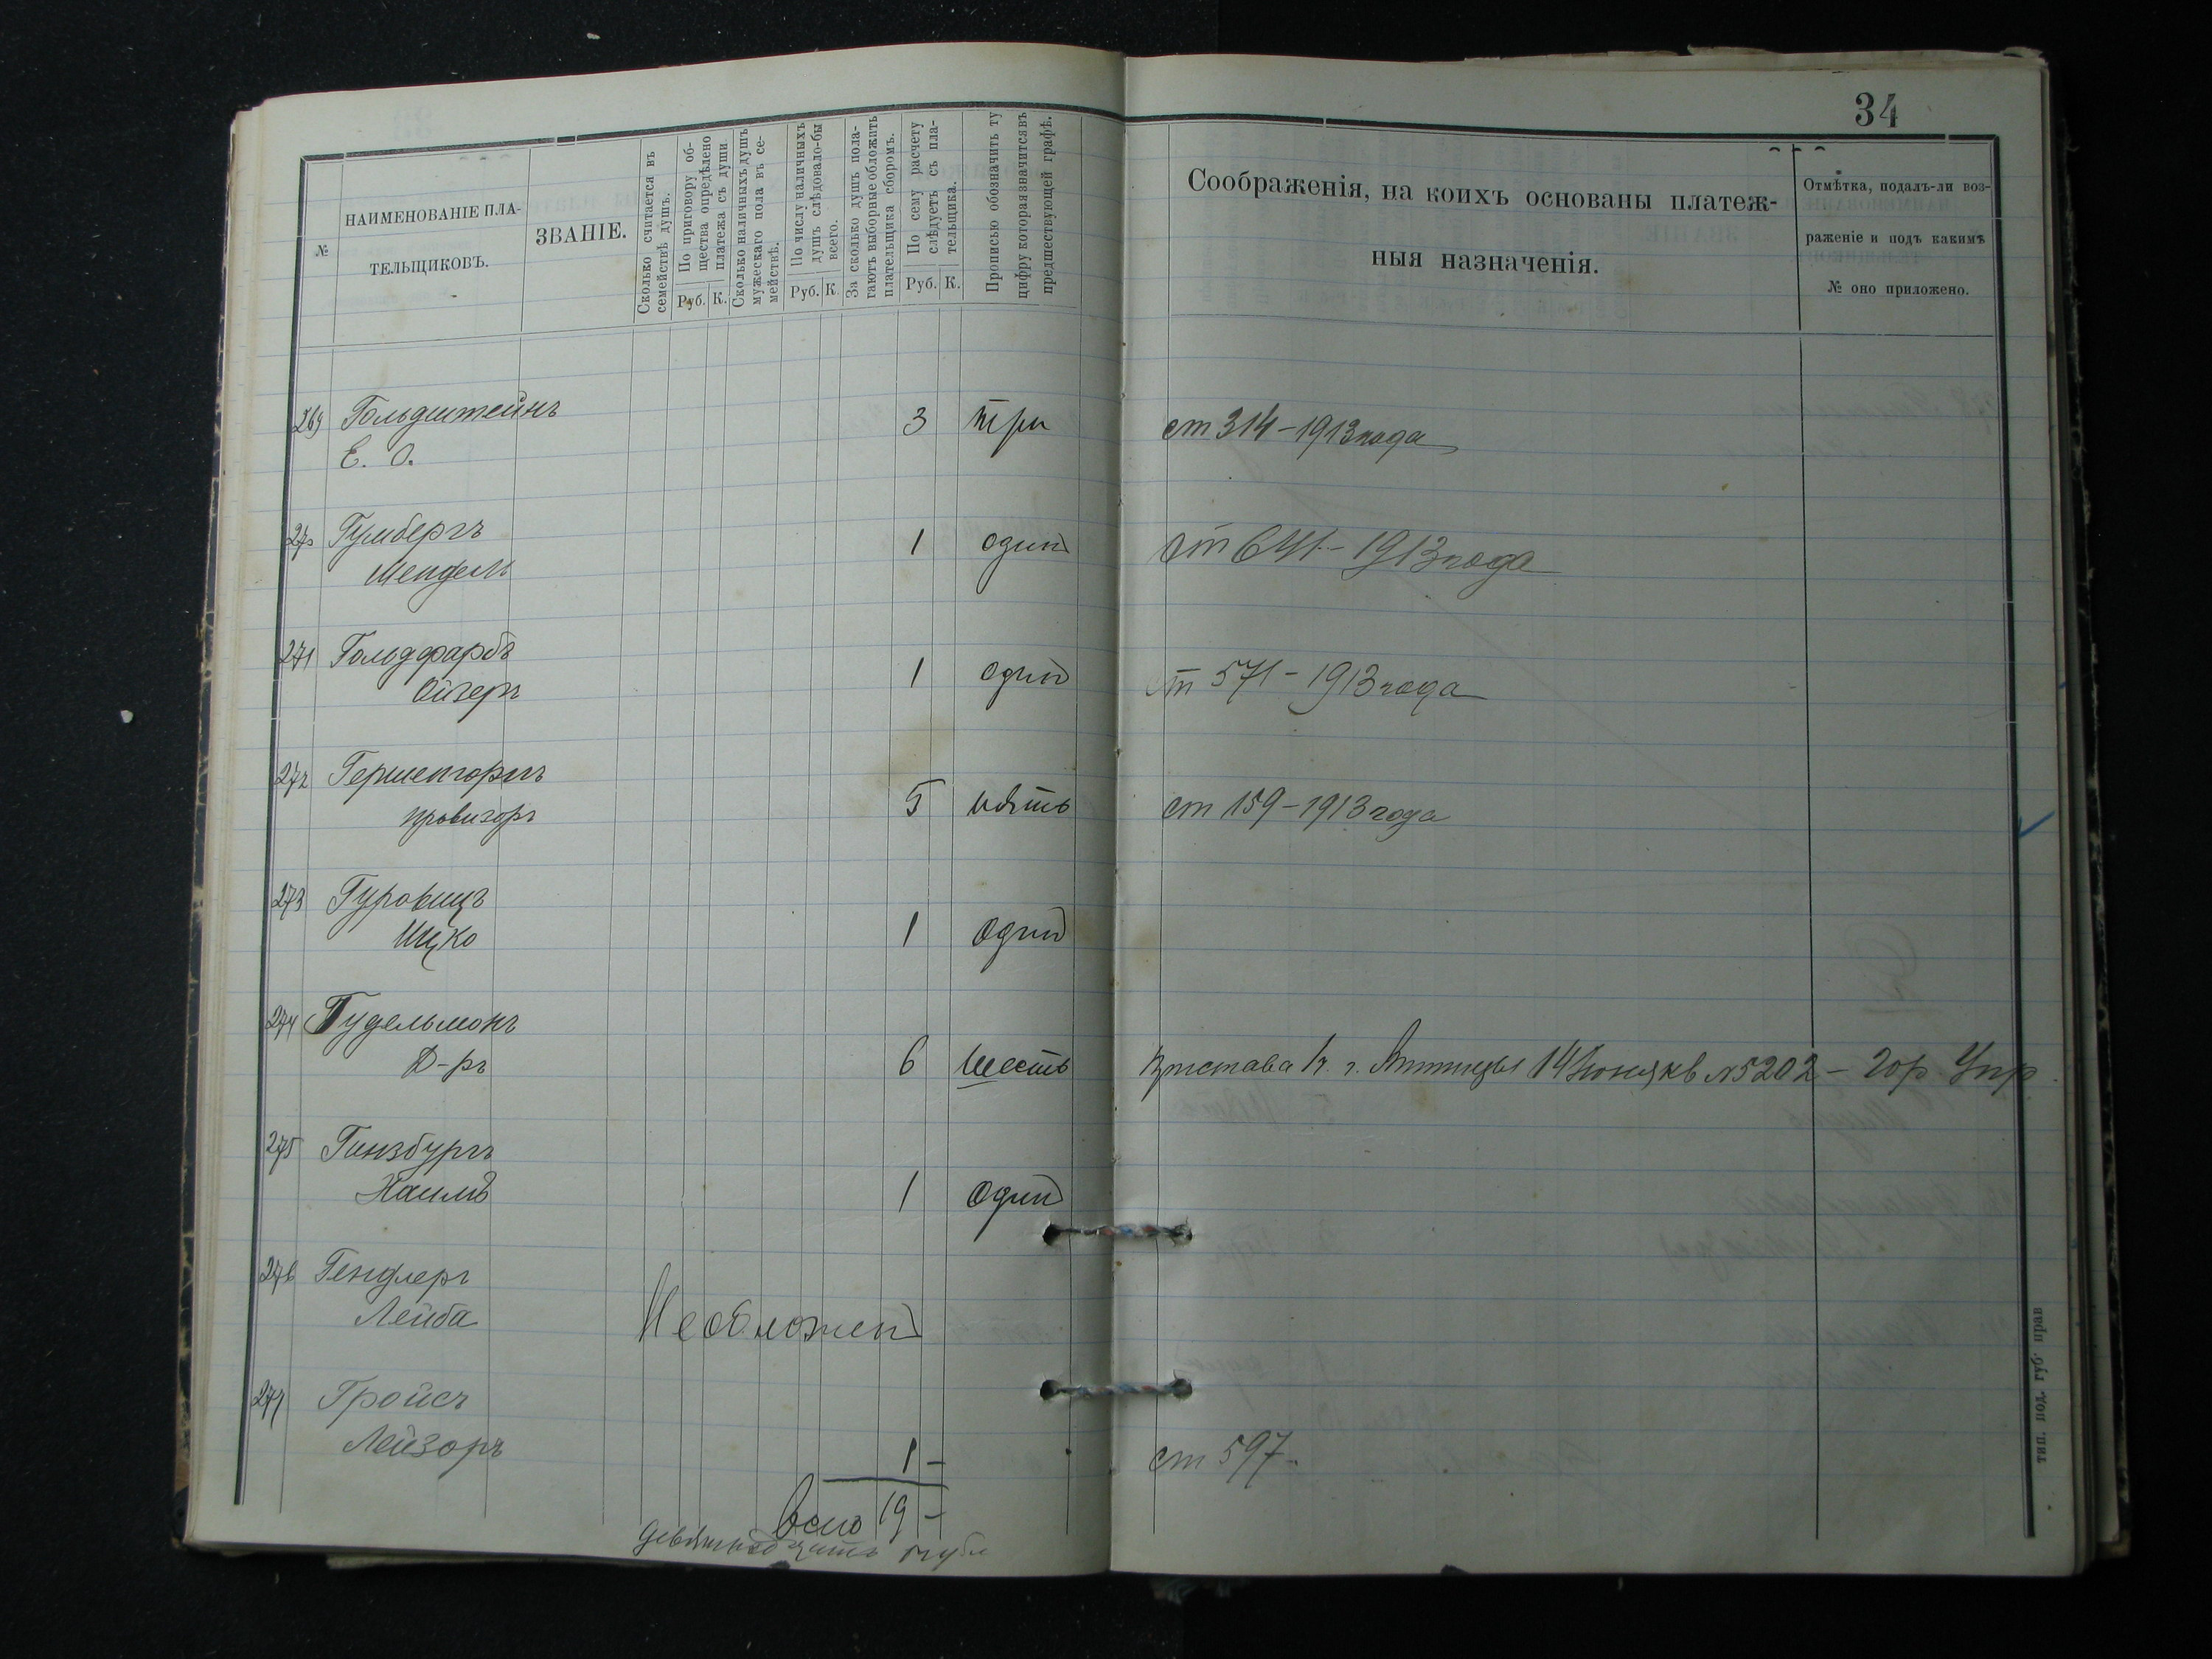 34
№
НАИМЕНОВАНІЕ ПЛА-
ТЕЛЬЩИКОВЪ.
ЗВАНІЕ.
Сколько считается въ
семействѣ душъ.
По приговору об-
щества опредѣлено
платежа съ души.
Руб. К.
Сколько наличныхъ душъ
мужескаго пола въ се-
мействѣ.
По числу наличныхъ
душъ слѣдовало-бы
всего.
Руб. К
За сколько душъ пола-
гаютъ выборные обложить
плательщика сборомъ.
По сему расчету
слѣдуетъ съ пла-
тельщика.
Руб. К.
Прописью обозначить ту
цифру которая значится въ
предшествующей графѣ.
Соображенія, на коихъ основаны платеж-
ныя назначенія.
Отмѣтка, подалъ-ли воз-
раженіе и подъ какимъ
№ оно приложено.
269 Гольдштейнъ 3 три ст 314-1913 года
Е. О.
270 Гумбергъ 1 один ст 641-1913 года
Мендель
271 Голодфарбъ 1 один ст 571-1913 года
Ойзеръ
272 5 пять ст 159-1913 года
провизоръ
273 Гуровицъ
Ицко 1 один
274 Гудельманъ
Д-ръ 6 шесть Пристава г. 14 Июня № 5202 - Гор Упр.
275 Гинзбургъ
Хаимъ 1 один
276 Гендлеръ
Лейба Необложен
277 Гройсъ
Лейзоръ 1 - ст 597-
всего 19 -
девятнадцать рубл
тип. под. губ. прав